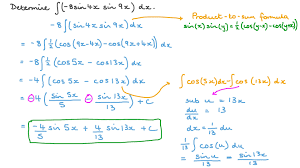 Determine ∫(-8 sin4x sin9x) dx
-8∫(sin4x sin9x) dx
Product-to-sum formula
sin(x) sin(y) = ½(cos(x-y) - cos(x+y))
= -8∫(½(cos(9x-4x) - cos(9x+4x))) dx
= -8∫½(cos5x - cos13x) dx
= -4∫(cos5x - cos13x) dx
∫cos(5x)dx - ∫cos(13x) dx
= -4(sin5x/5 - sin13x/13) + C
sub u = 13x
du/dx = 13
dx = 1/13 du
= -4/5 sin5x + 4/13 sin13x + C
1/13 ∫cos(u) du
= sinu/13 = sin13x/13